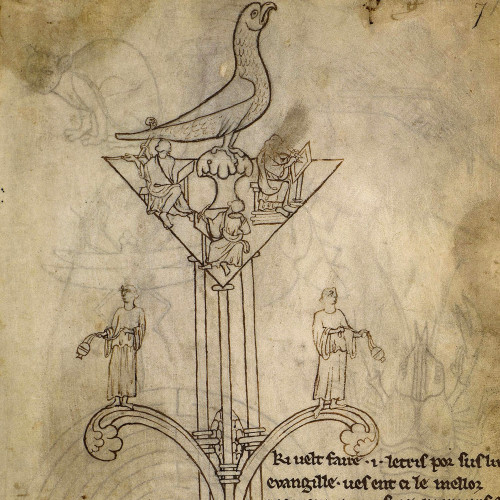 7
Ki velt faire ·i· letris por sus
evangille · ves ent ci le mellor